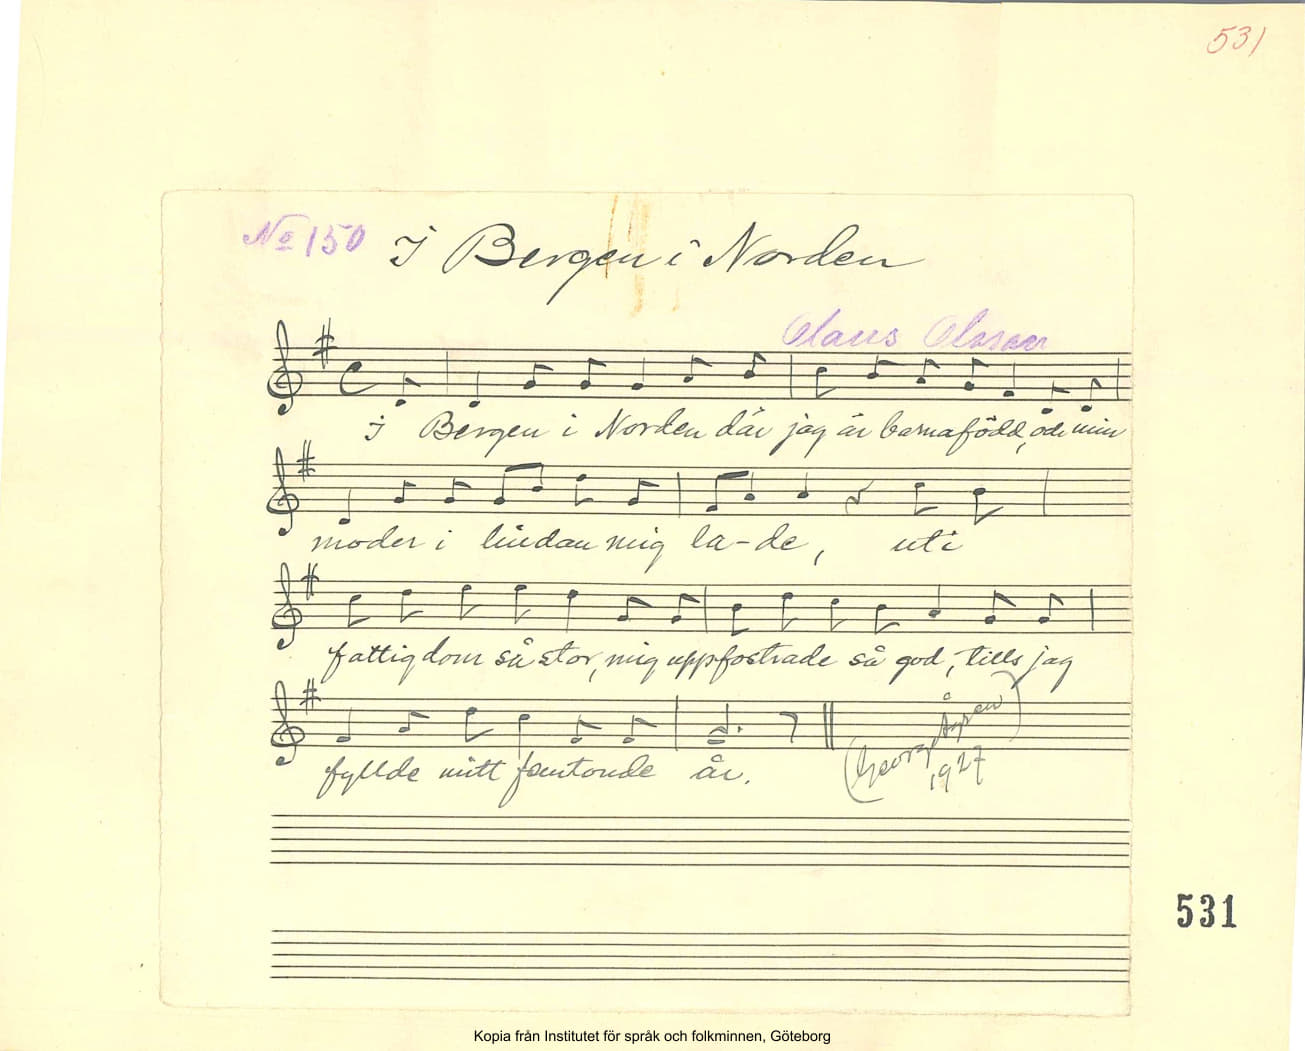 531
No 150 I Bergen i Norden
Claus Olsson
I Bergen i Norden där jag är barnafödd, och min
moder i lindan mig la-de, uti
fattigdom så stor, mig uppfostrade så god, tills jag
fyllde mitt femtonde år.
(Georg
1927
531
Kopia från Institutet för språk och folkminnen, Göteborg